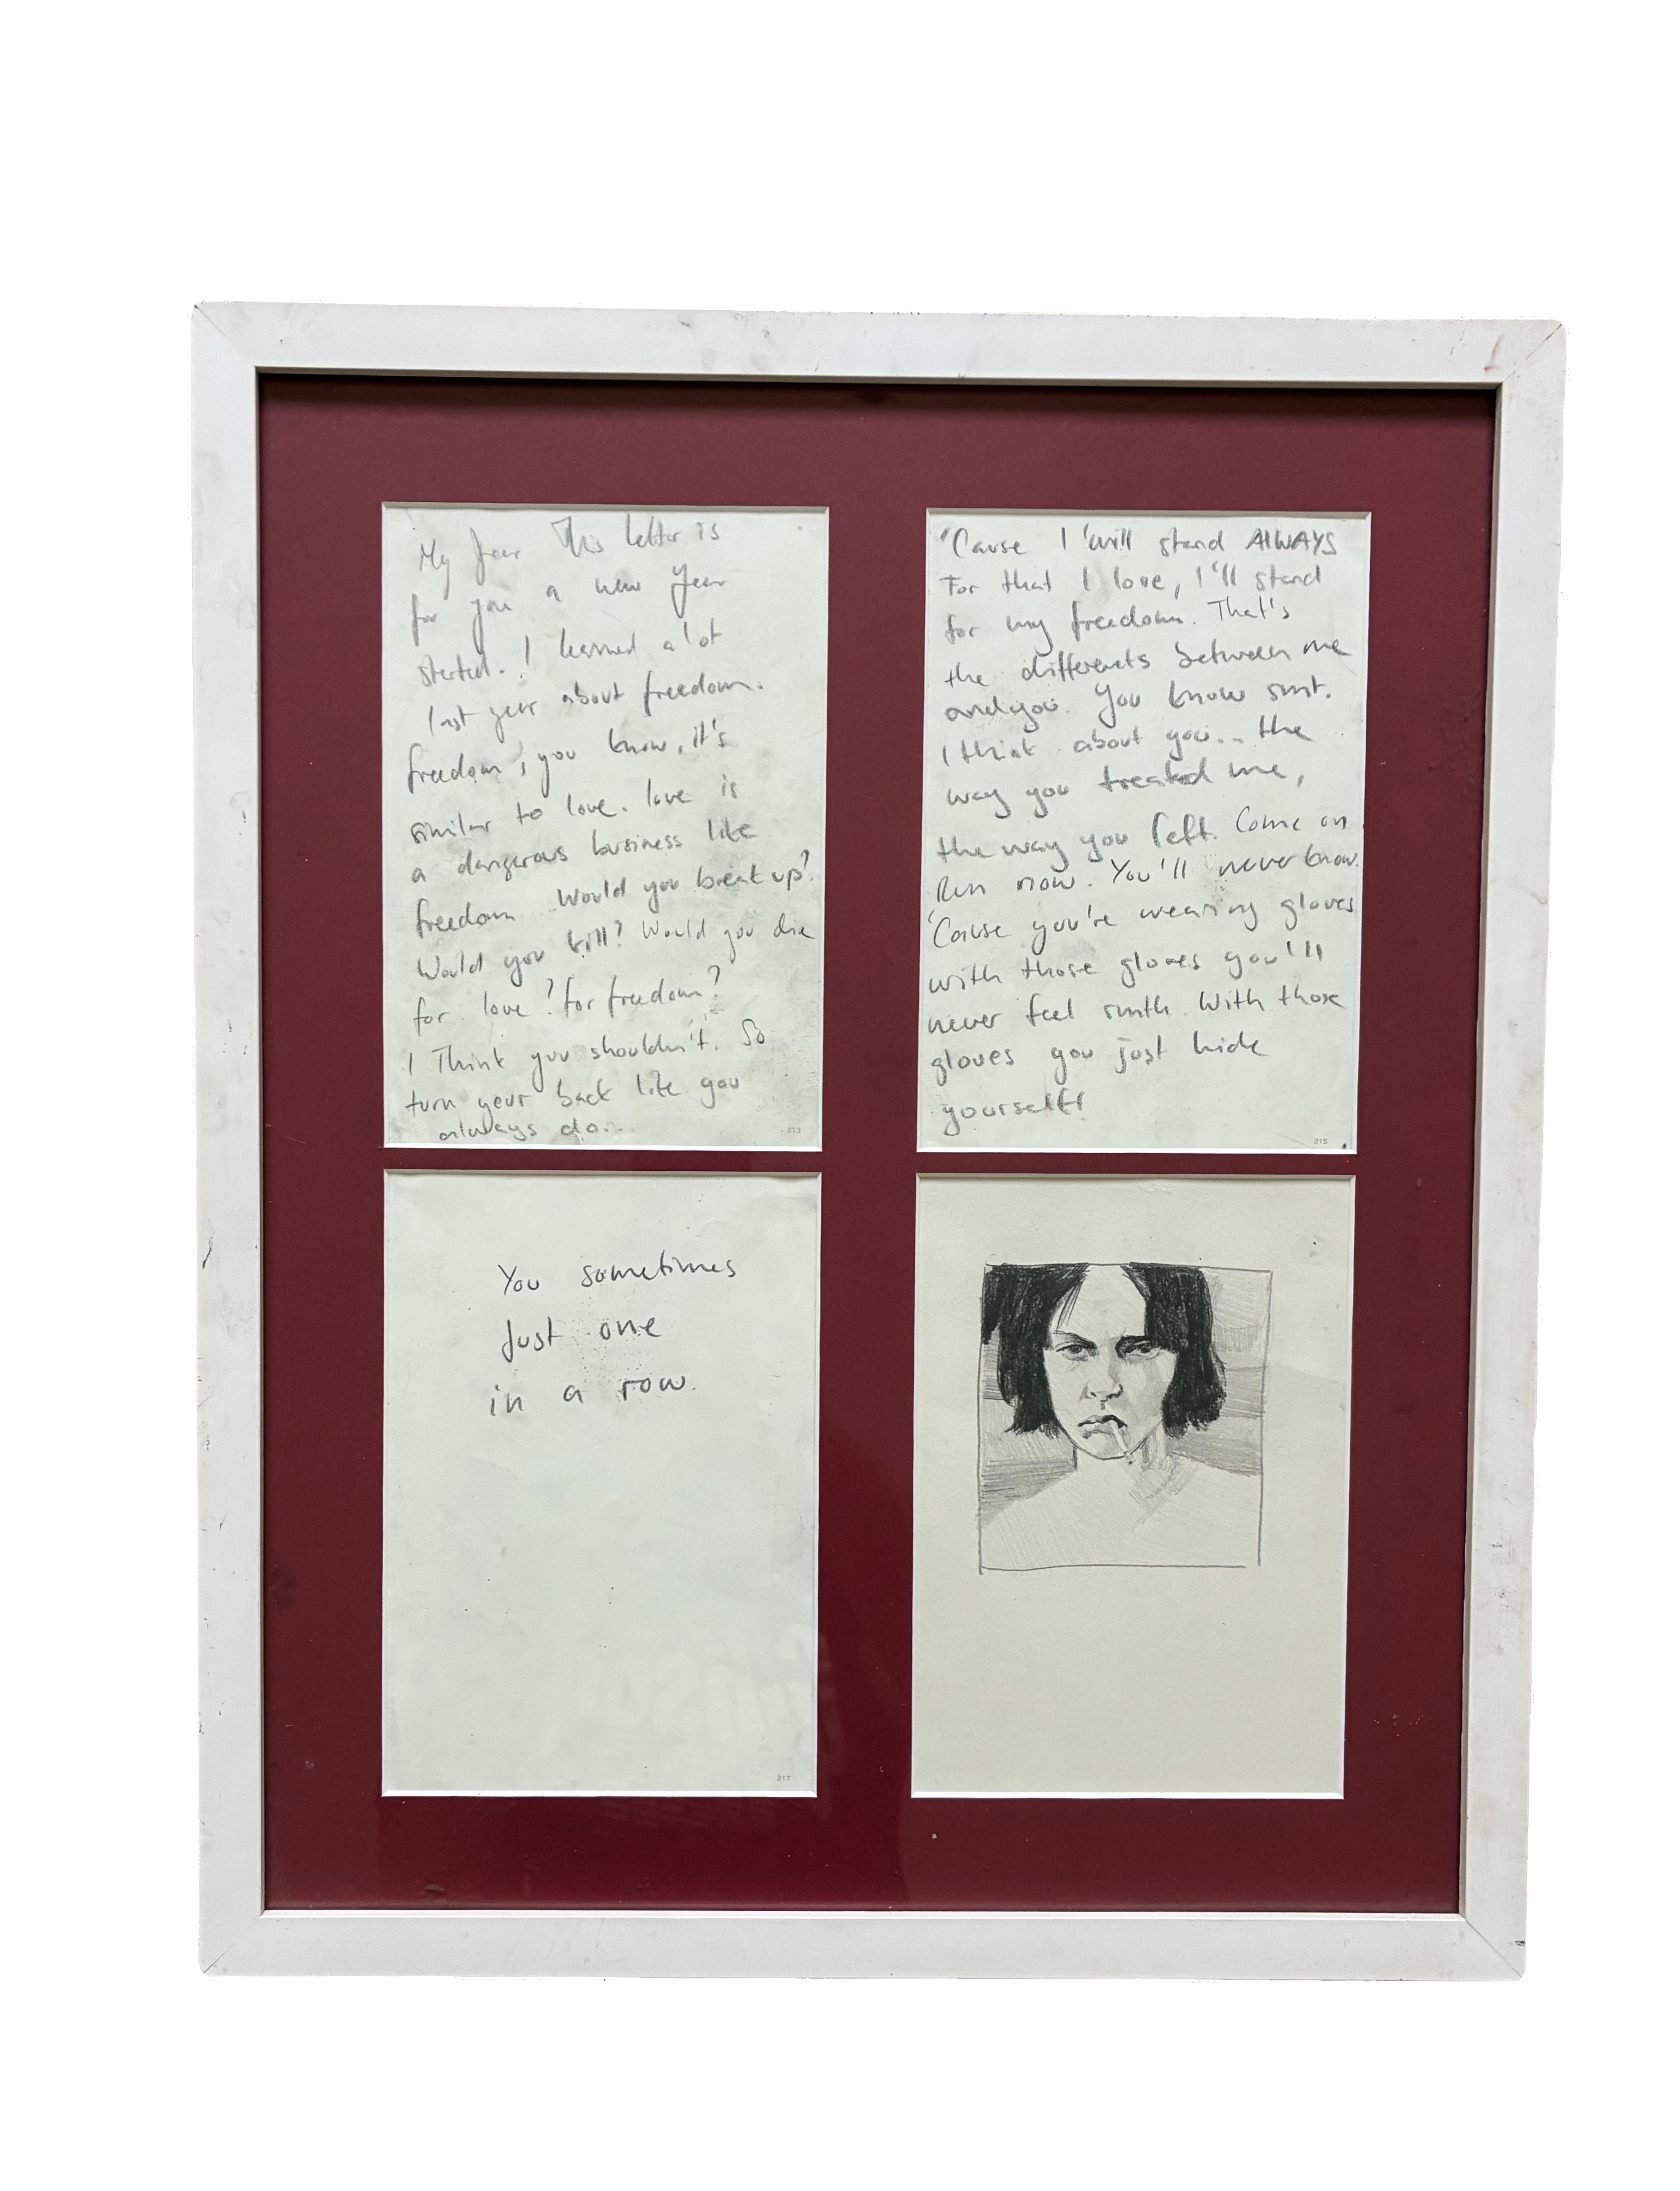 My fear This letter is
for you a new year
started. I learned a lot
last year about freedom.
freedom, you know, it's
similar to love. love is
a dangerous business like
freedom Would you break up?
Would you kill? Would you die
for love? for freedom?
I Think you shouldn't. So
turn your back like you
always do...
213
'Cause I will stand ALWAYS
For that I love, I'll stand
for my freedom. That's
the differents between me
and you. You know smt.
I think about you... the
way you treated me,
the way you left. Come on
Run now. You'll never know.
'Cause you're wearing gloves
with those gloves you'll
never feel smth. With those
gloves you just hide
yourself!
215
You sometimes
Just one
in a row.
217